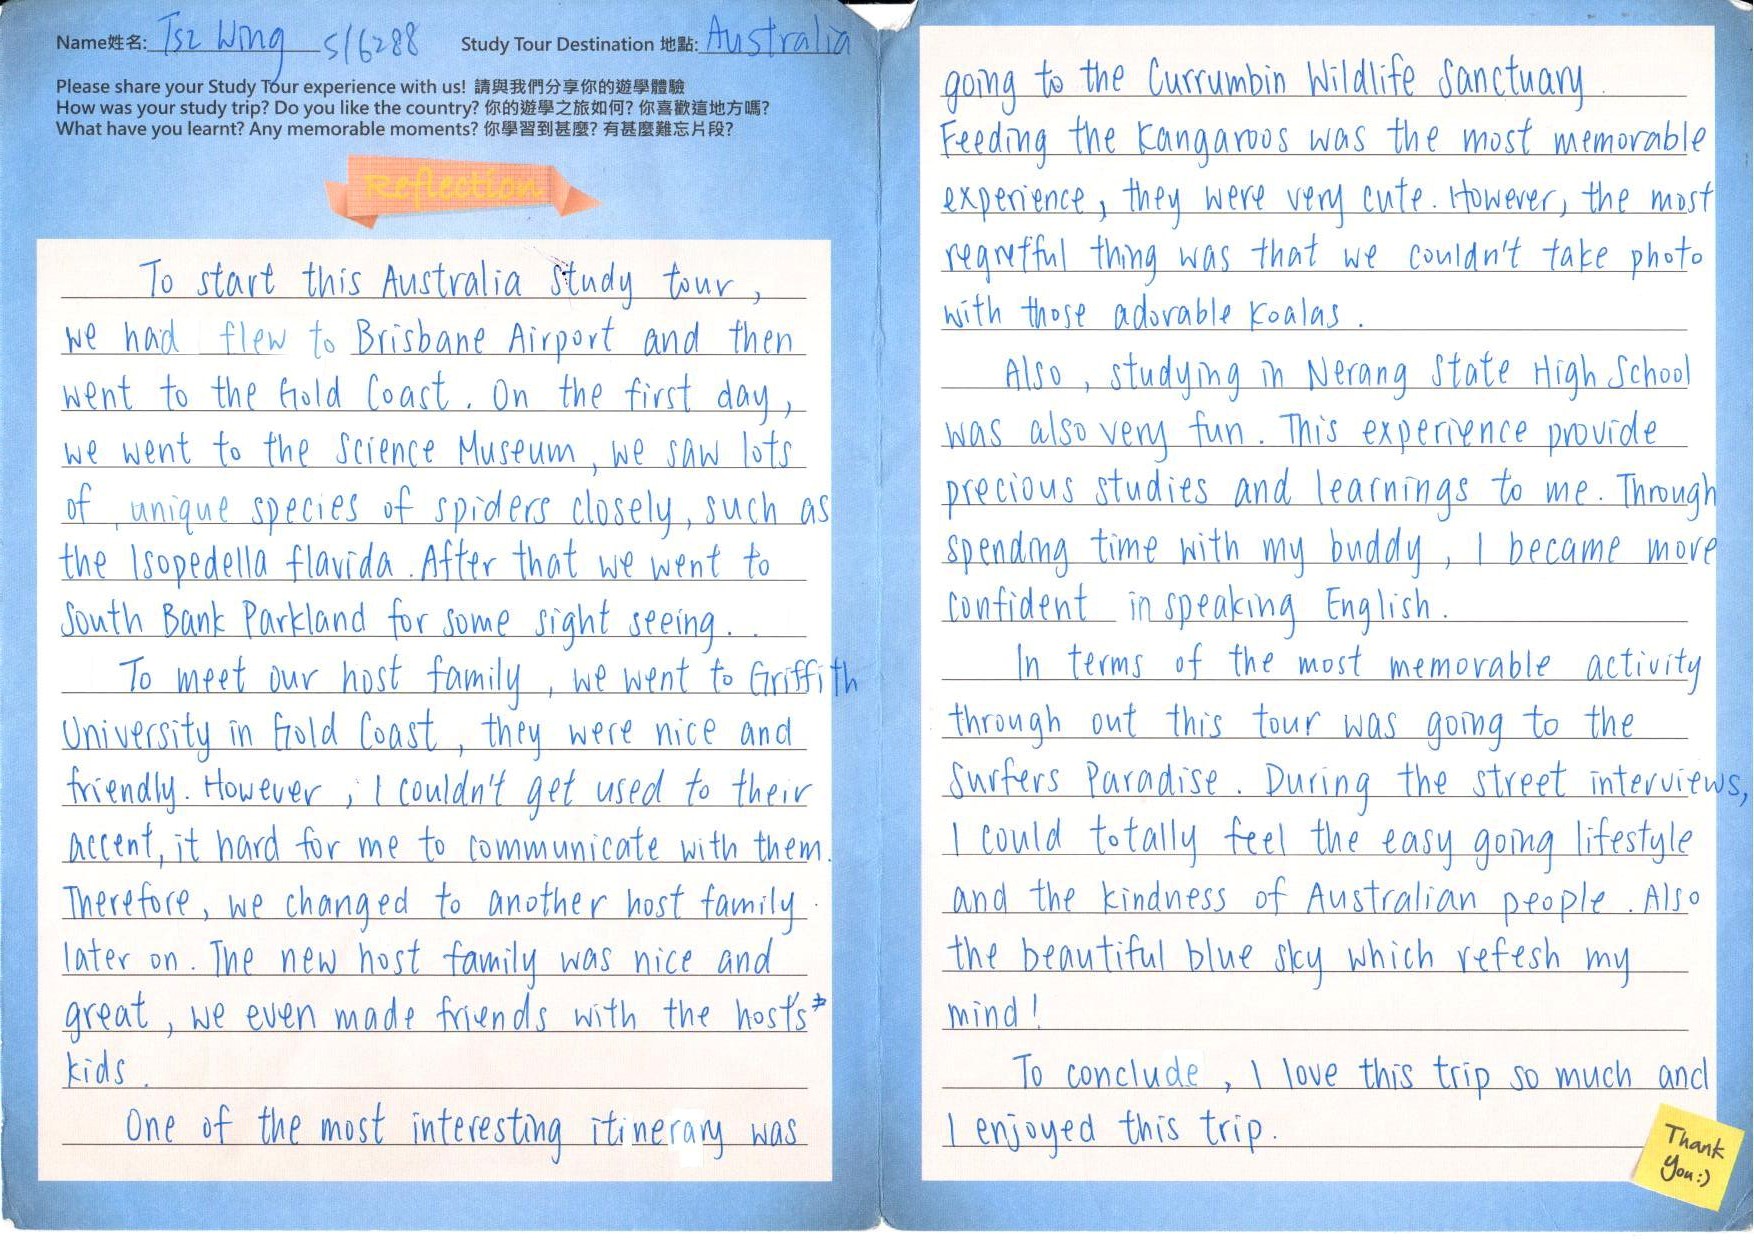 Name姓名: Tsz Wing S16288 Study Tour Destination 地點: Australia
Please share your Study Tour experience with us! 請與我們分享你的遊學體驗
How was your study trip? Do you like the country? 你的遊學之旅如何? 你喜歡這地方嗎?
What have you learnt? Any memorable moments? 你學習到甚麼? 有甚麼難忘片段?
Reflection
To start this Australia study tour,
we had flew to Brisbane Airport and then
went to the Gold Coast. On the first day,
we went to the Science Museum, we saw lots
of unique species of spiders closely, such as
the Isopedella flavida. After that we went to
South Bank Parkland for some sight seeing..
To meet our host family, we went to Griffith
University in Gold Coast, they were nice and
friendly. However, I couldn't get used to their
accent, it hard for me to communicate with them.
Therefore, we changed to another host family
later on. The new host family was nice and
great, we even made friends with the host's
kids.
One of the most interesting itinerary was
going to the Currumbin Wildlife Sanctuary.
Feeding the Kangaroos was the most memorable
experience, they were very cute. However, the most
regretful thing was that we couldn't take photo
with those adorable Koalas.
Also, studying in Nerang State High School
was also very fun. This experience provide
precious studies and learnings to me. Through
spending time with my buddy, I became more
confident in speaking English.
In terms of the most memorable activity
through out this tour was going to the
Surfers Paradise. During the street interviews,
I could totally feel the easy going lifestyle
and the kindness of Australian people. Also
the beautiful blue sky which refesh my
mind!
To conclude, I love this trip so much and
I enjoyed this trip.
Thank
you :)